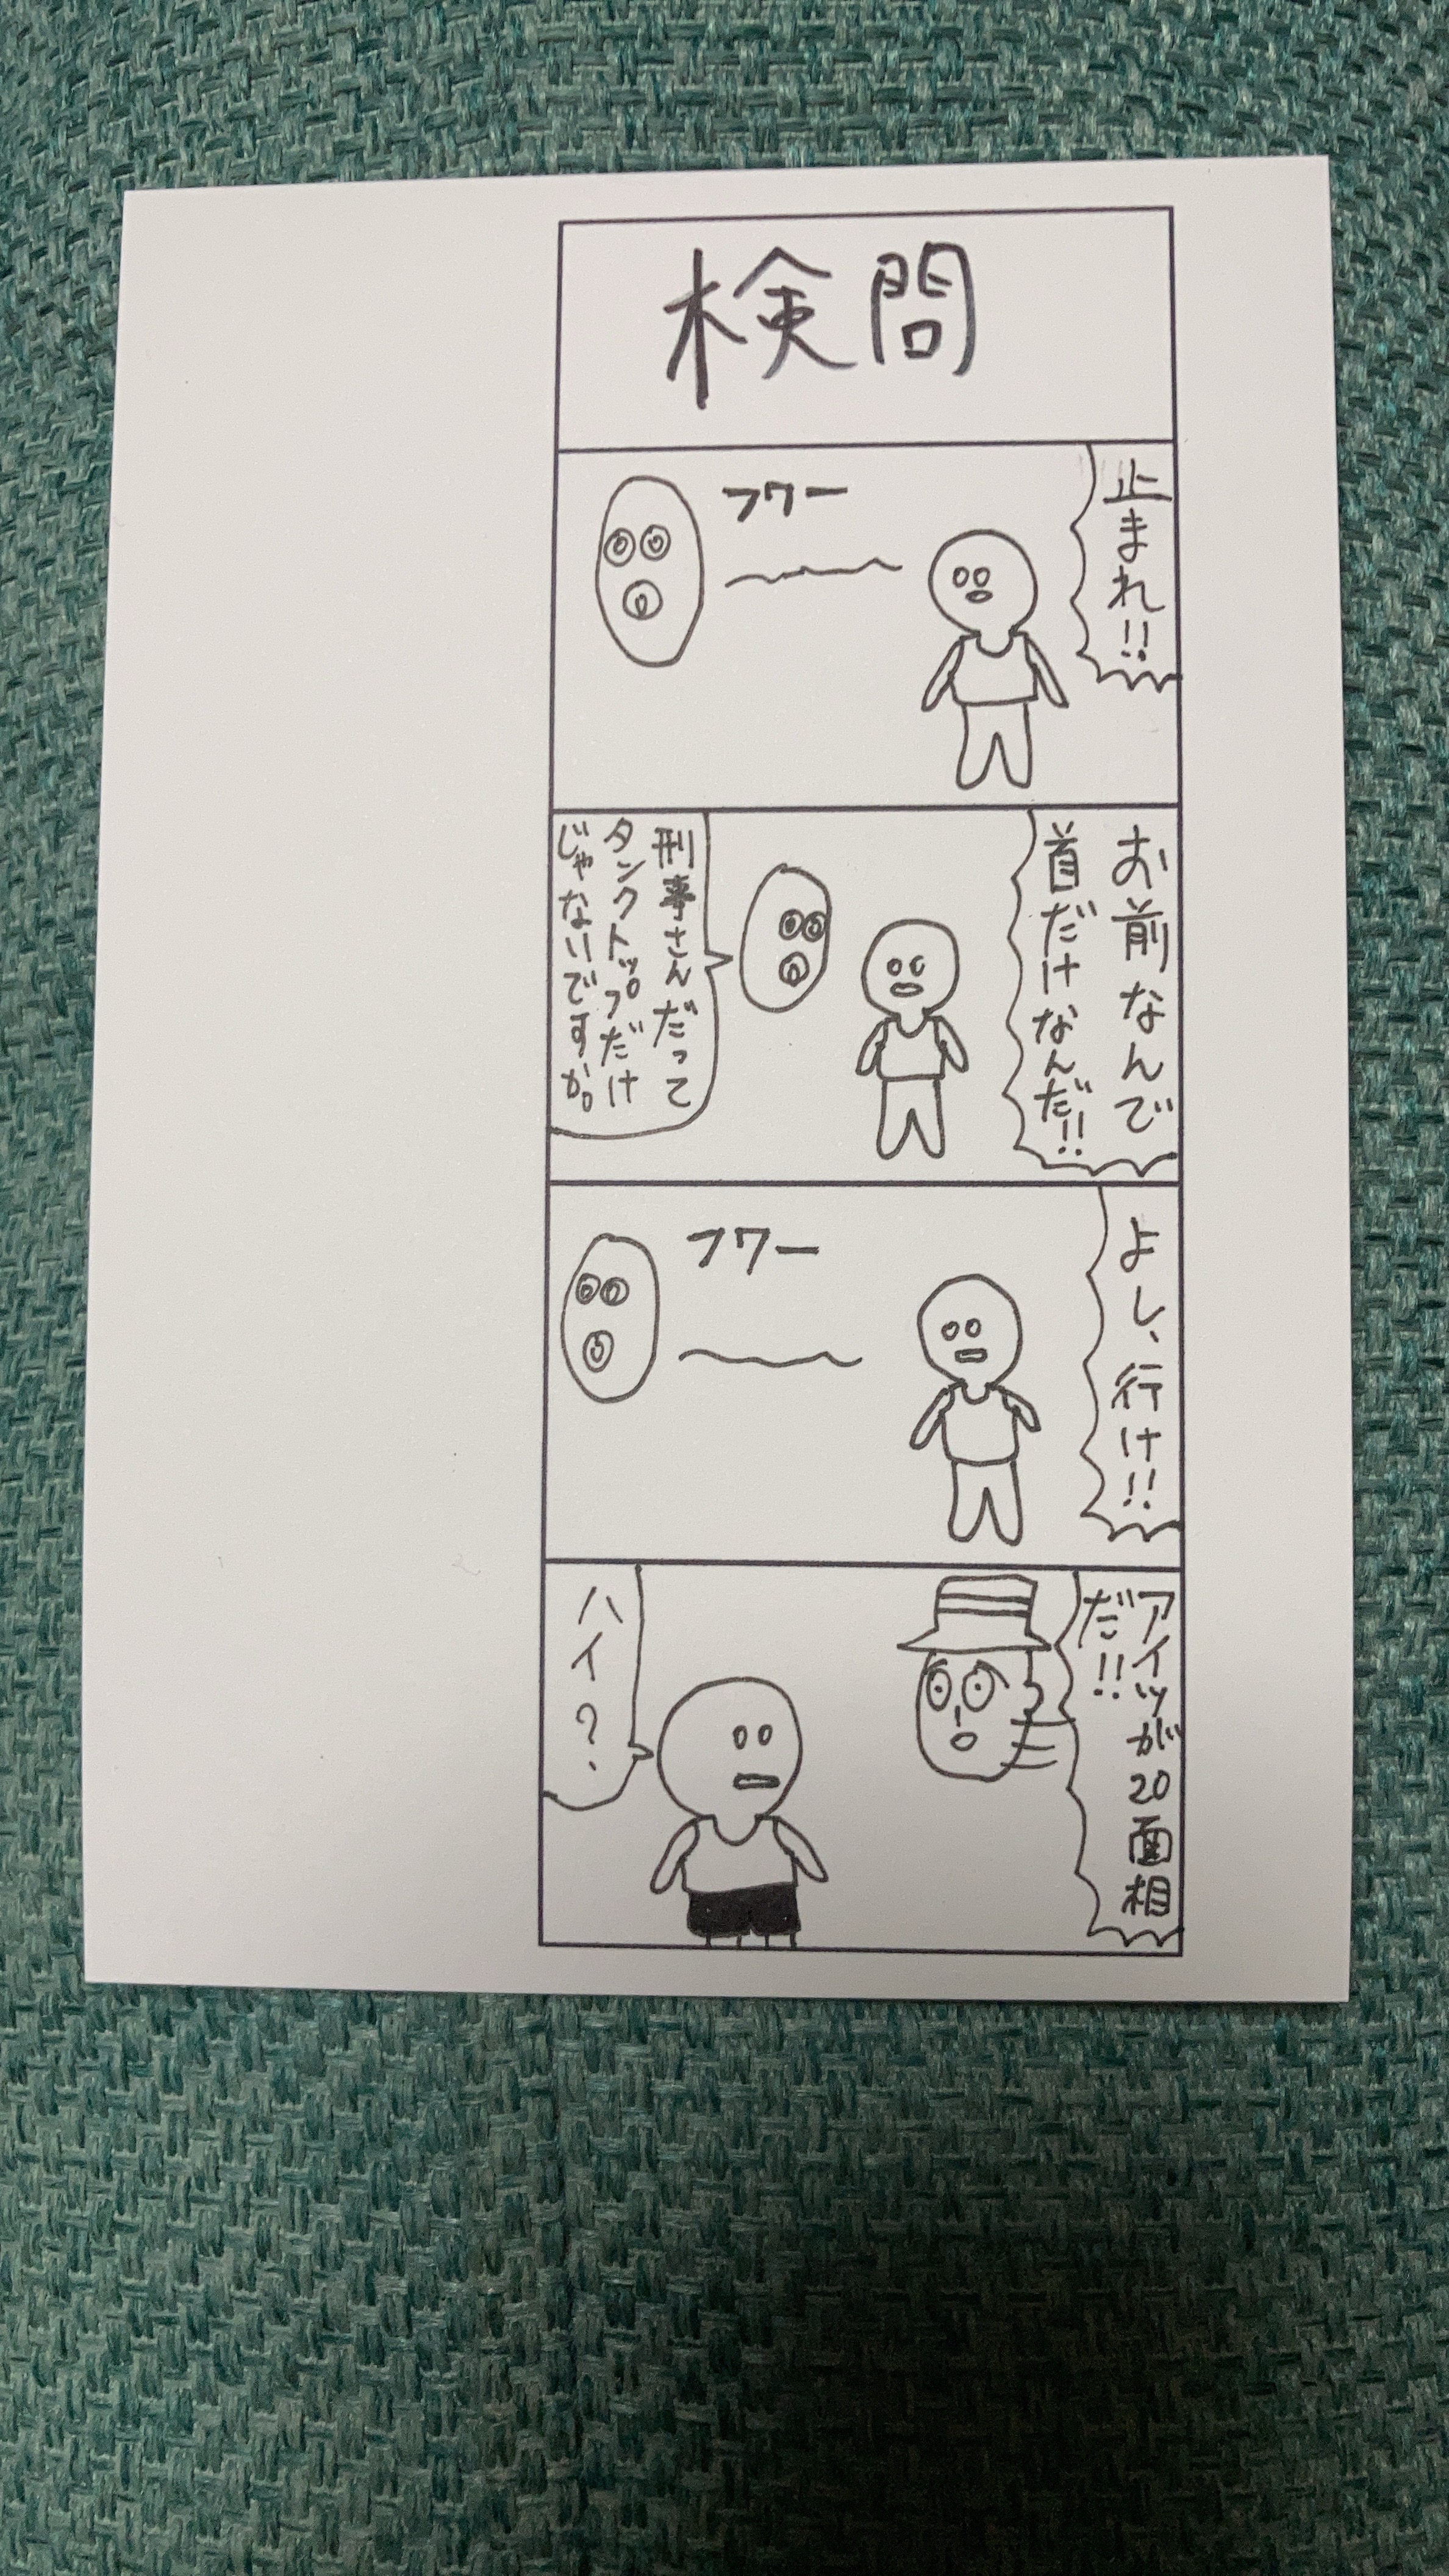 検問
止まれ!!
フワー
お前なんで
首だけなんだ!!
刑事さんだって
タンクトップだけ
じゃないですか。
よし、行け!!
フワー
アイツが20面相
だ!!
ハイ?